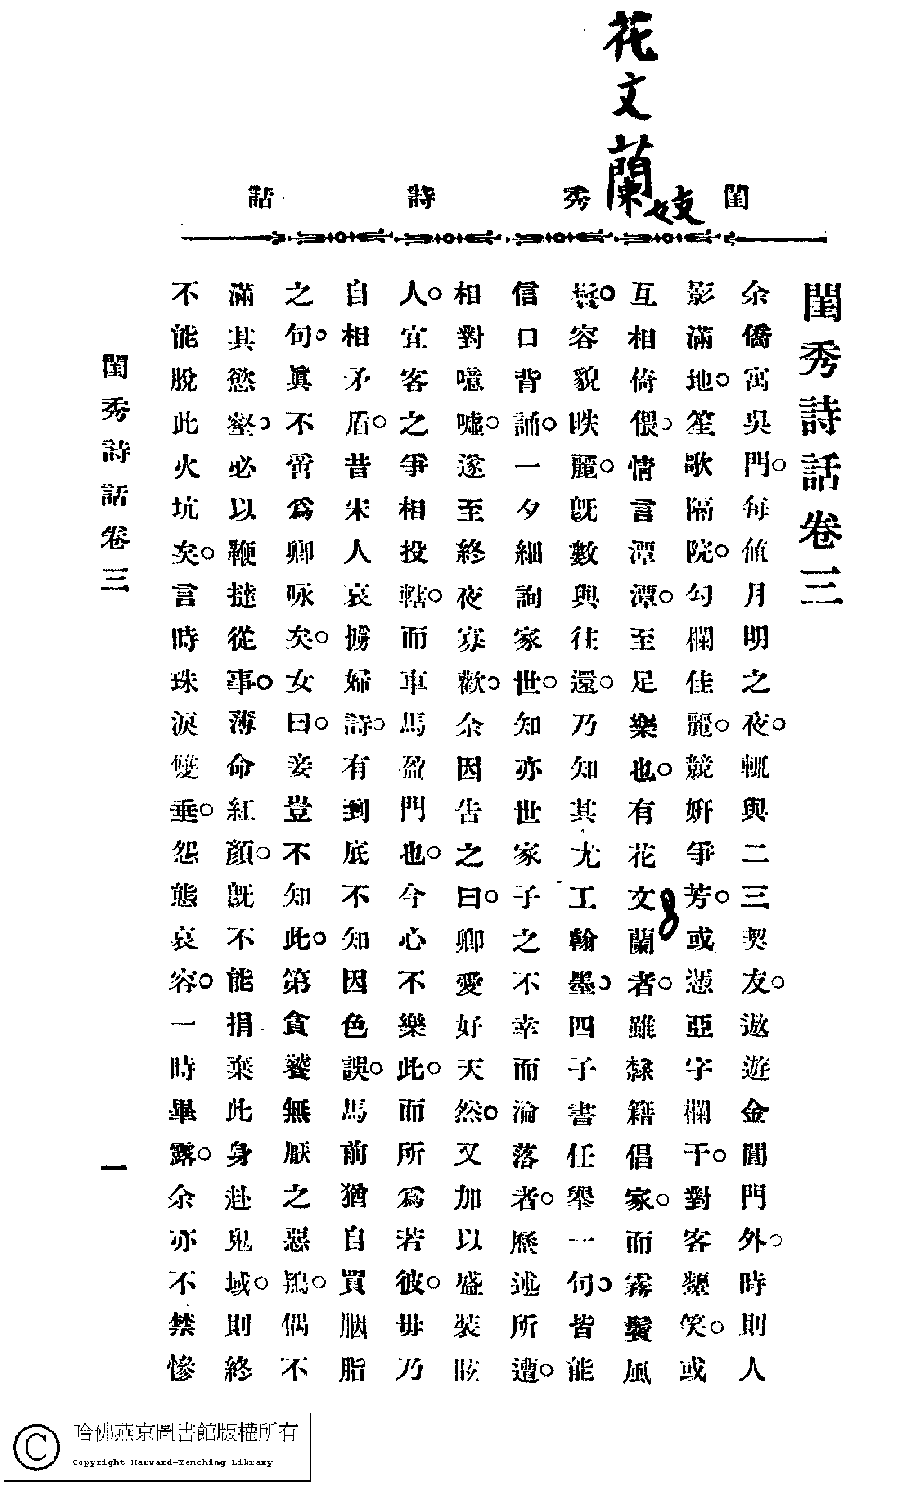 花文蘭妓
閨秀詩話
閨秀詩話卷三
余僑寓吳門。每値月明之夜。輒與二三契友。遨遊金閶門外。時則人
影滿地。笙歌隔院。勾欄佳麗。競妍爭芳。或憑亞字欄干。對客顰笑。或
互相倚偎。情言潭潭。至足樂也。有花文蘭者。雖隸籍倡家。而霧鬢風
鬟。容貌昳麗。旣數與往還。乃知其尤工翰墨。四子書任舉一句。皆能
信口背誦。一夕細詢家世。知亦世家子之不幸而淪落者。歷述所遭。
相對噫噓。遂至終夜寡歡。余因告之曰。卿愛好天然。又加以盛裝眩
人。宜客之爭相投轄。而車馬盈門也。今心不樂此。而所爲若彼。毋乃
自相矛盾。昔宋人哀搒婦詩。有到底不知因色誤。馬前猶自買胭脂
之句。眞不啻爲卿咏矣。女曰。妾豈不知此。第貪饕無厭之惡鴇。偶不
滿其慾壑。必以鞭撻從事。薄命紅顏。旣不能捐棄此身。赴鬼域。則終
不能脫此火坑矣。言時珠淚雙垂。怨態哀容。一時畢露。余亦不禁慘
閨秀詩話卷三
一
哈佛燕京圖書館版權所有
Copyright Harvard-Yenching Library